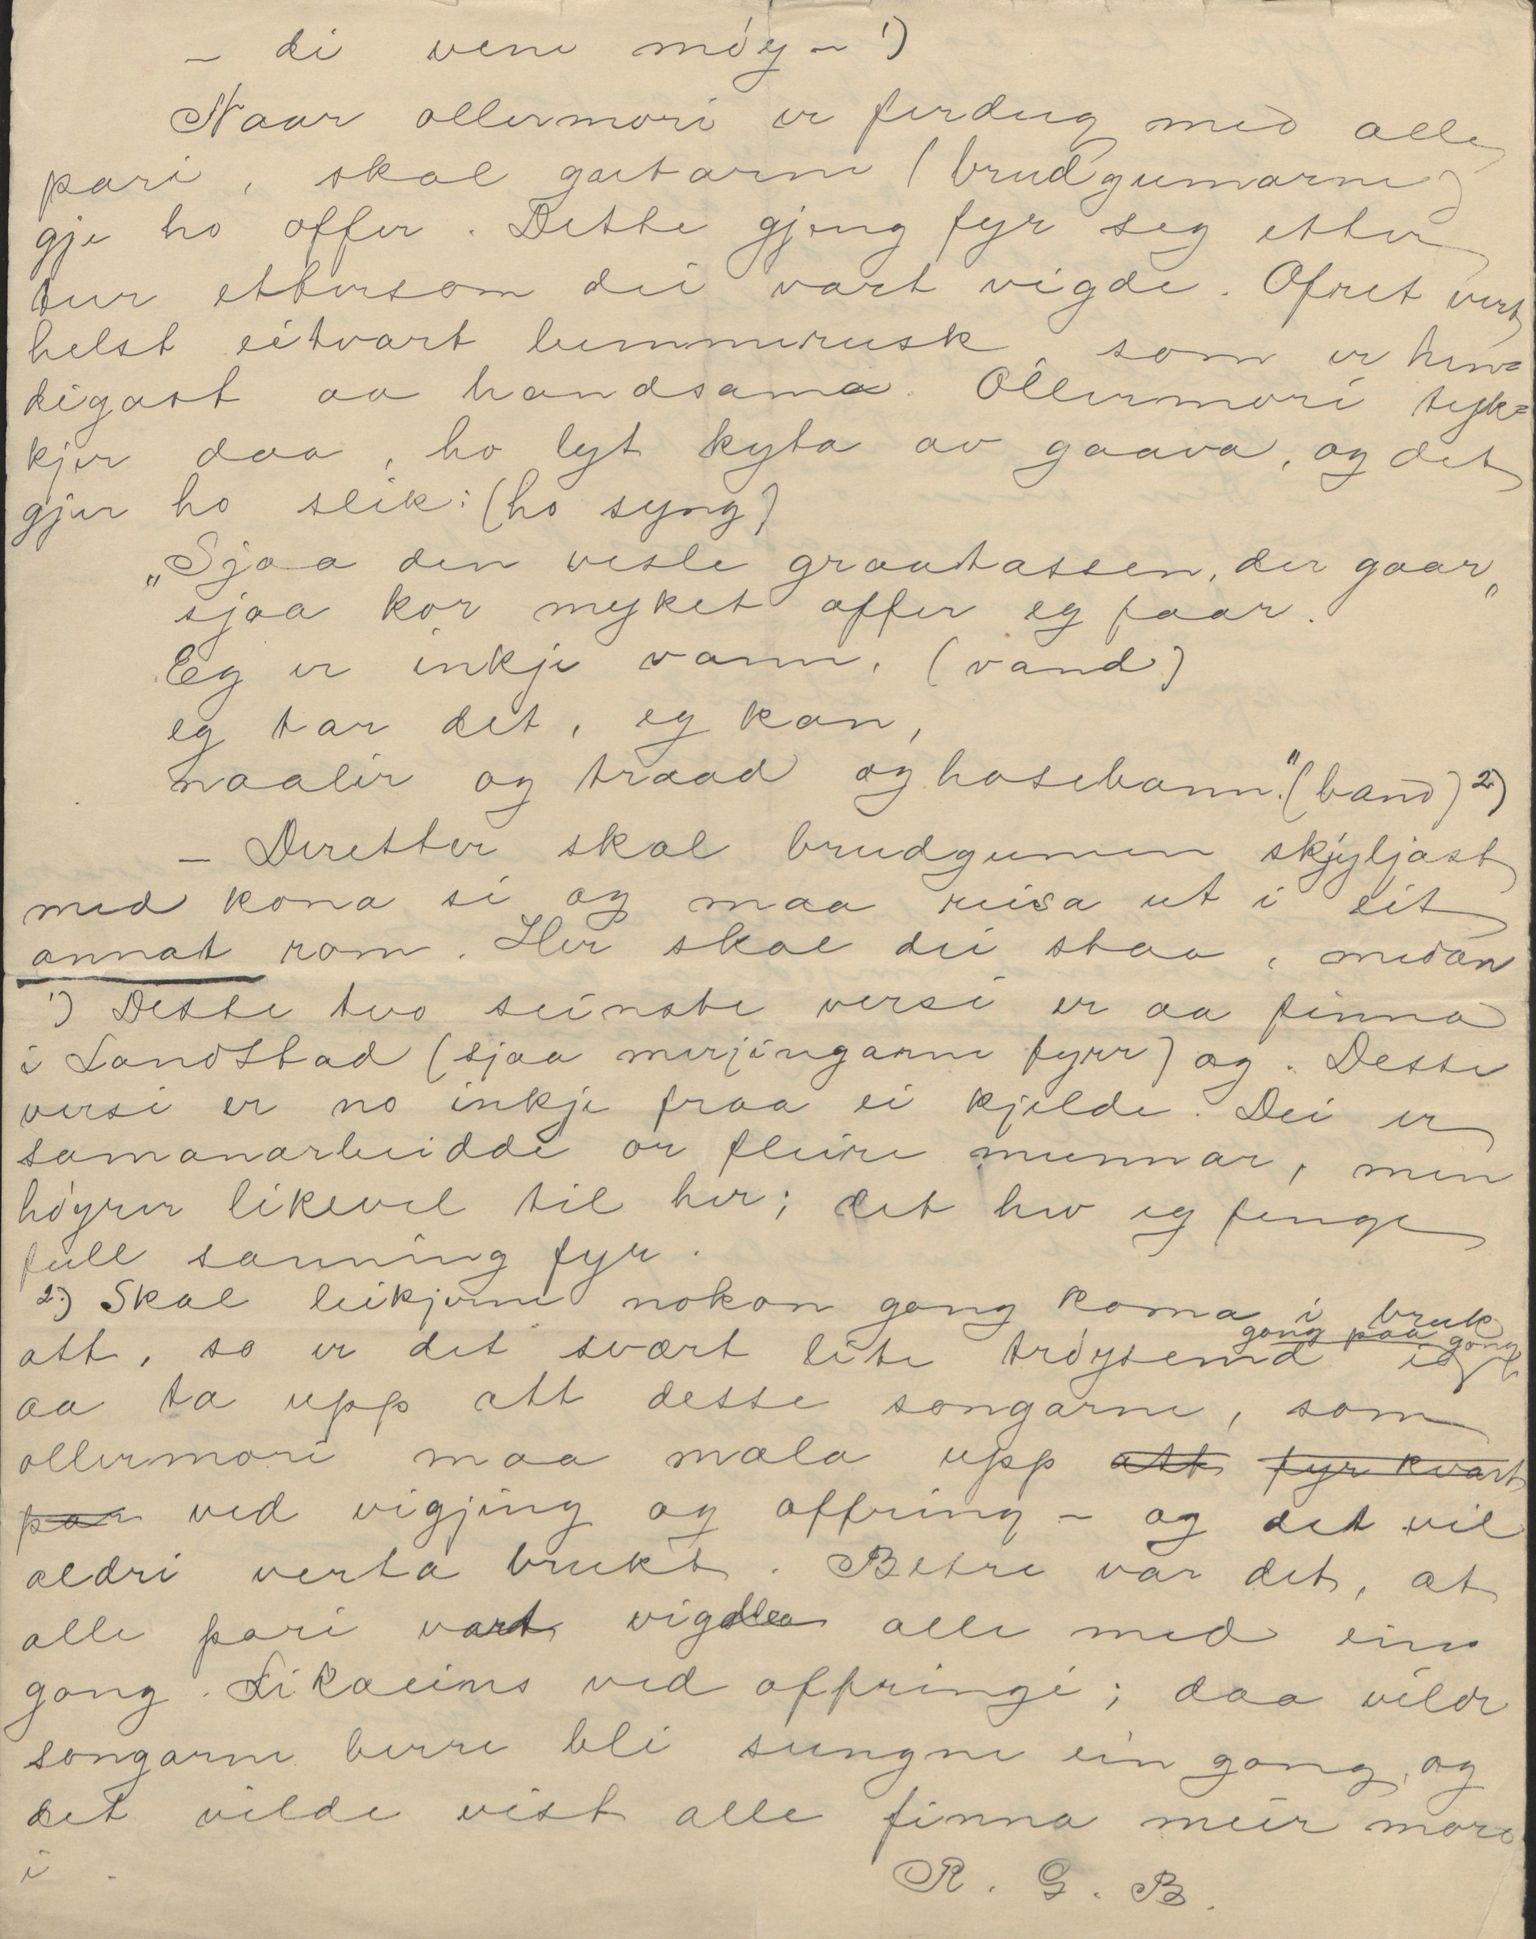 – di vene møy – 1)
Naar ollermori er ferdug med alle
pari, skal gutarne (brudgumarne)
gje ho offer. Dette gjeng fyr seg etter
tur ettersom dei vart vigde. Ofret vert
helst eitvart lummerusk, som er hen=
digast aa handsama. Ollermori tyk=
kjer daa, ho lyt kyta av gaava, og det
gjer ho slik: (ho syng)
„Sjaa den vesle graatassen, der gaar„
sjaa kor myket offer eg faar.
Eg er inkje vann, (vand)
eg tar det, eg kan,
naalir og traad og hosebann." (band) 2)
– Deretter skal brudgumen skyljast
med kona si og maa reisa ut i eit
annat rom. Her skal dei staa, medan
1) Desse two seinste versi er aa finna
i Landstad (sjaa merjingarne fyrr) og. Desse
versi er no inkje fraa ei kjelde. Dei er
samanarbeidde or fleire munnar, men
høyrer likevel til her; det hev eg fenge
full sanning fyr.
2) Skal leikjerne nokon gong koma i bruk
att, so er det svært lite trøysemd i gong paa gong
aa ta upp att desse songarne, som
ollermori maa mala upp att fyr kvart
par ved vigjing og offring – og det vil
aldri verta brukt. Betre var det, at
alle pari vart vigdde alle med ein
gong. Likaeins ved offringi; daa vilde
songarne berre bli sungne ein gong, og
det vilde vist alle finna meir moro
i.
R. G. B.